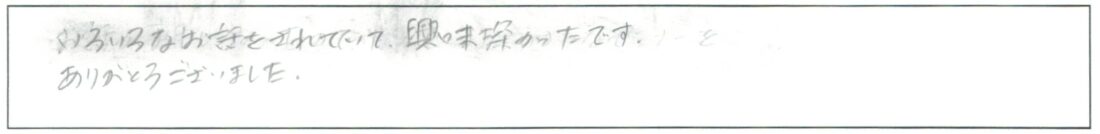 いろいろなお話をされていて、興味深かったです.
ありがとうございました.